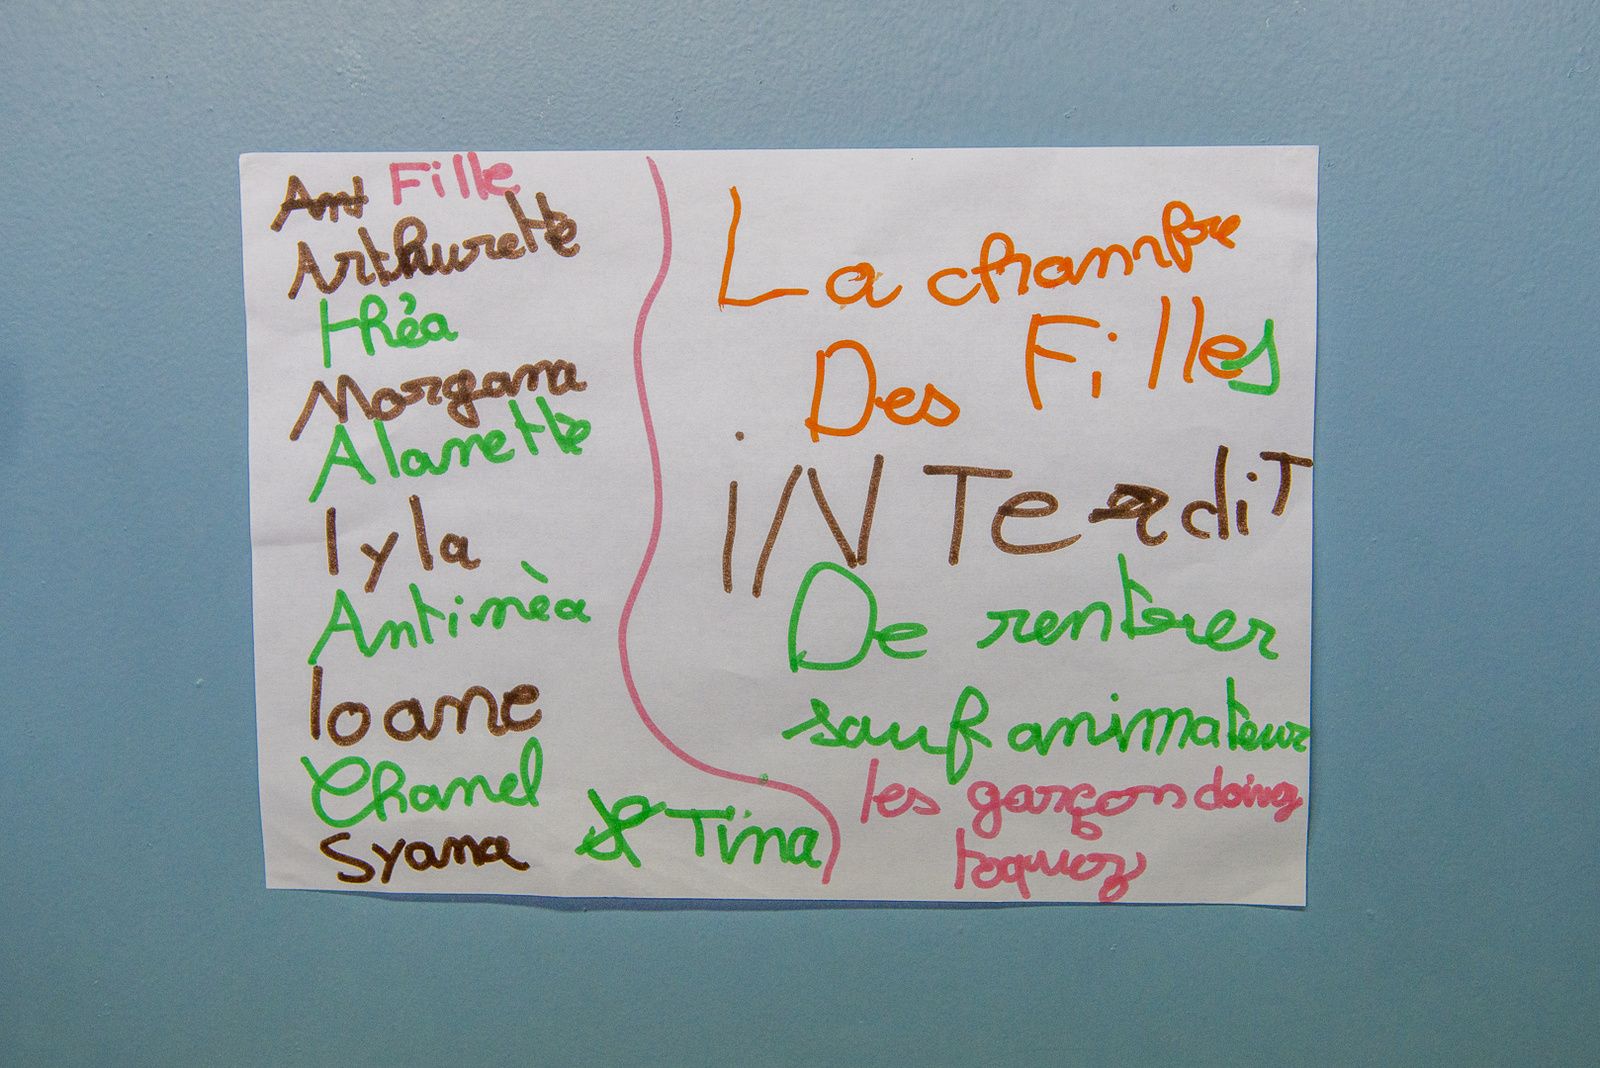 Fille
Arthurette
théa
Morgana
Alanette
lyla
Antinèa
Ioane
Chanel
Syana & Tina
La chambre
Des Filles
iNTerdiT
De renterer
sauf animateur
les garçon doing
toquez